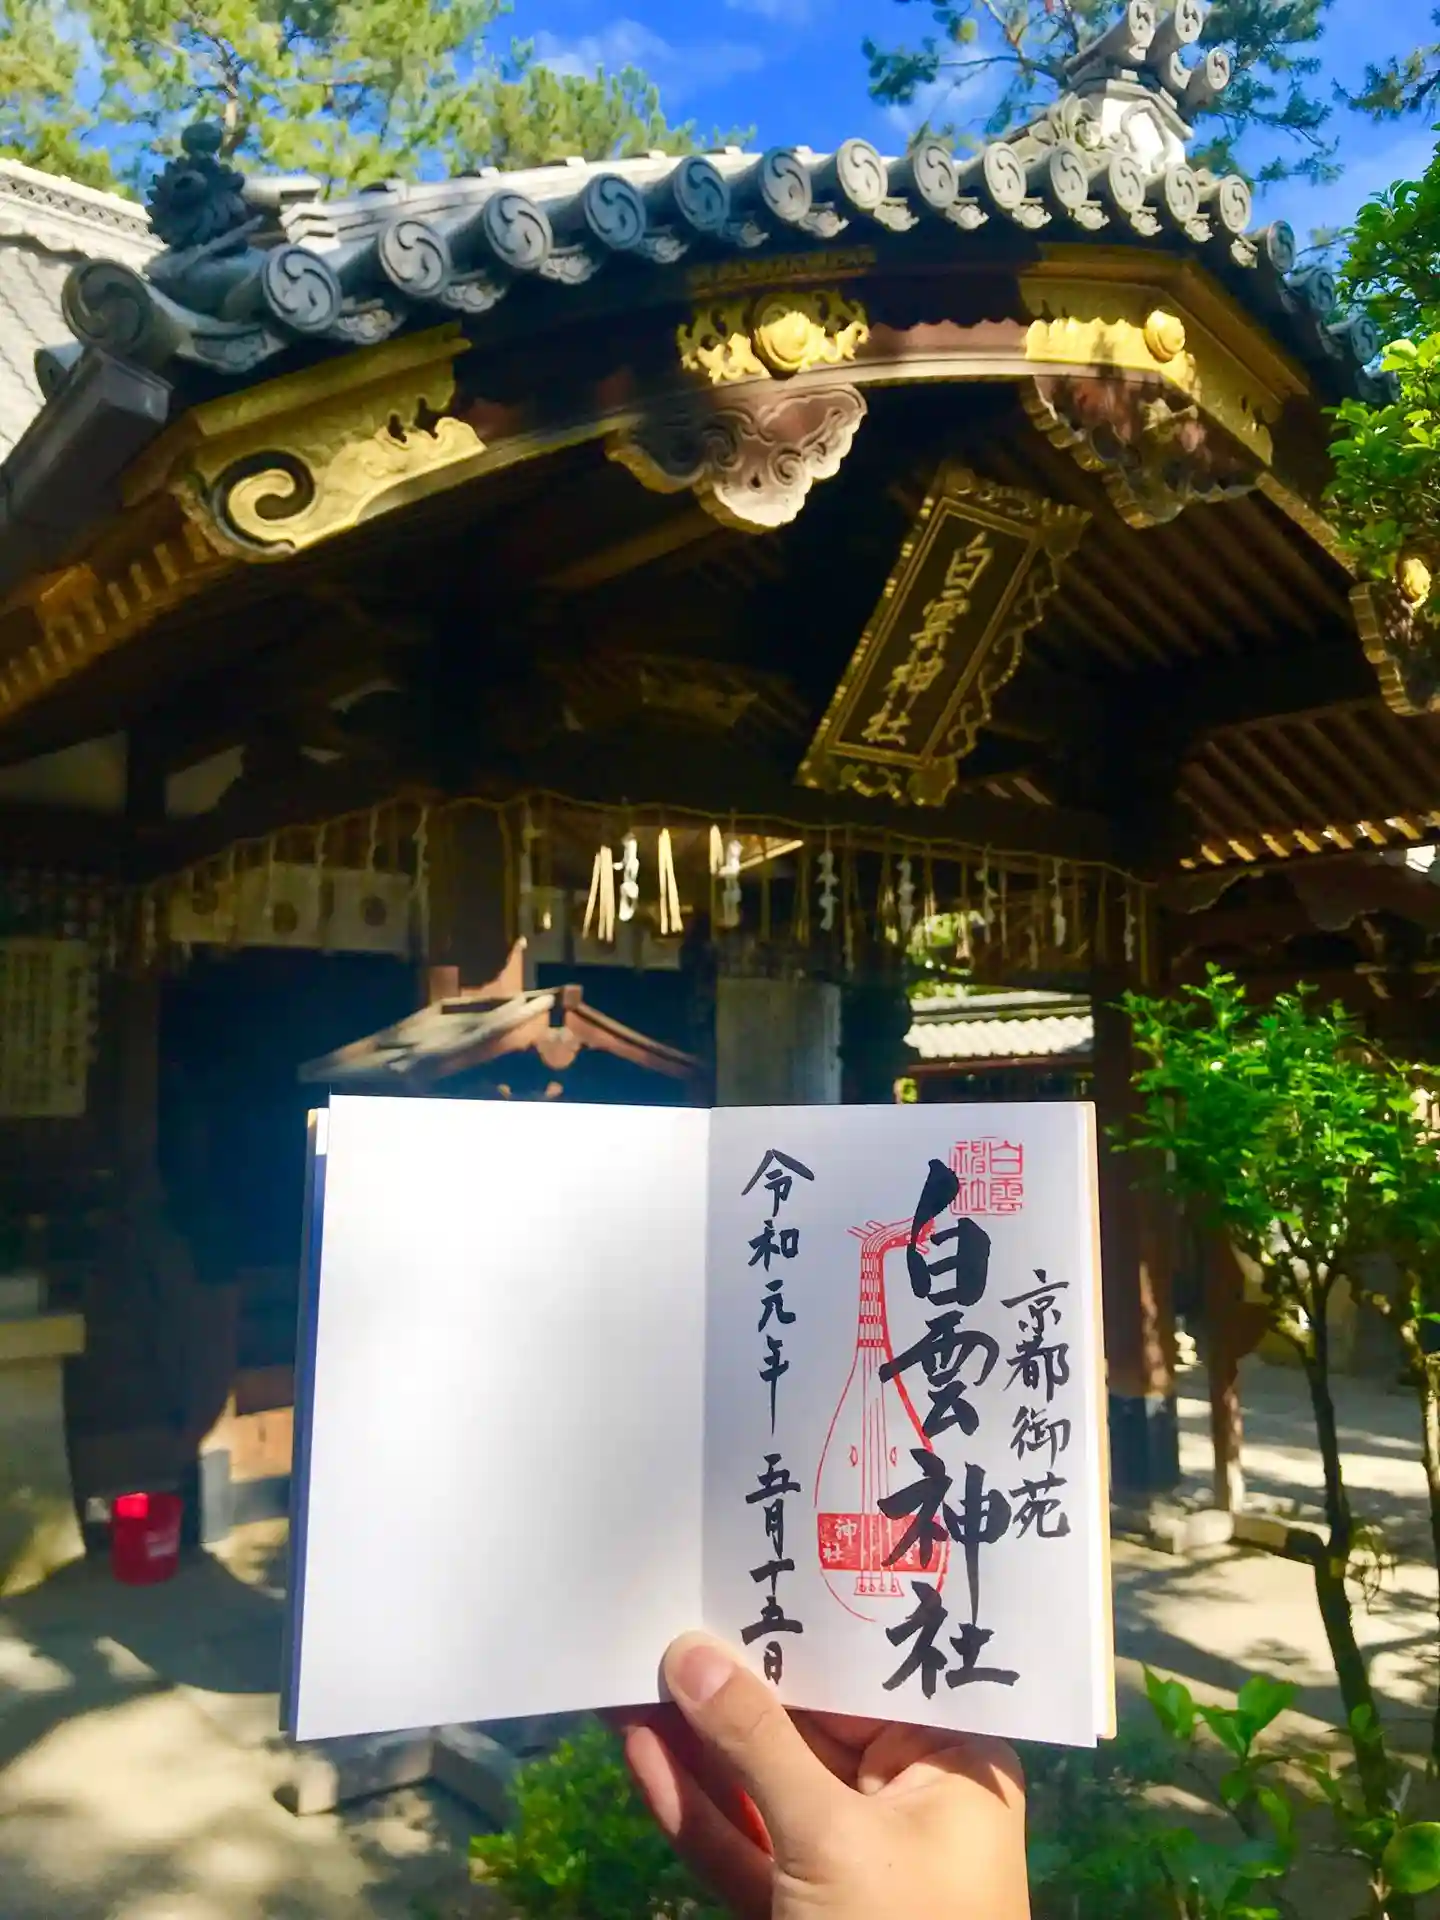 白雲神社
白雲
神社
京都御苑
白雲神社
神社
令和元年 五月十五日